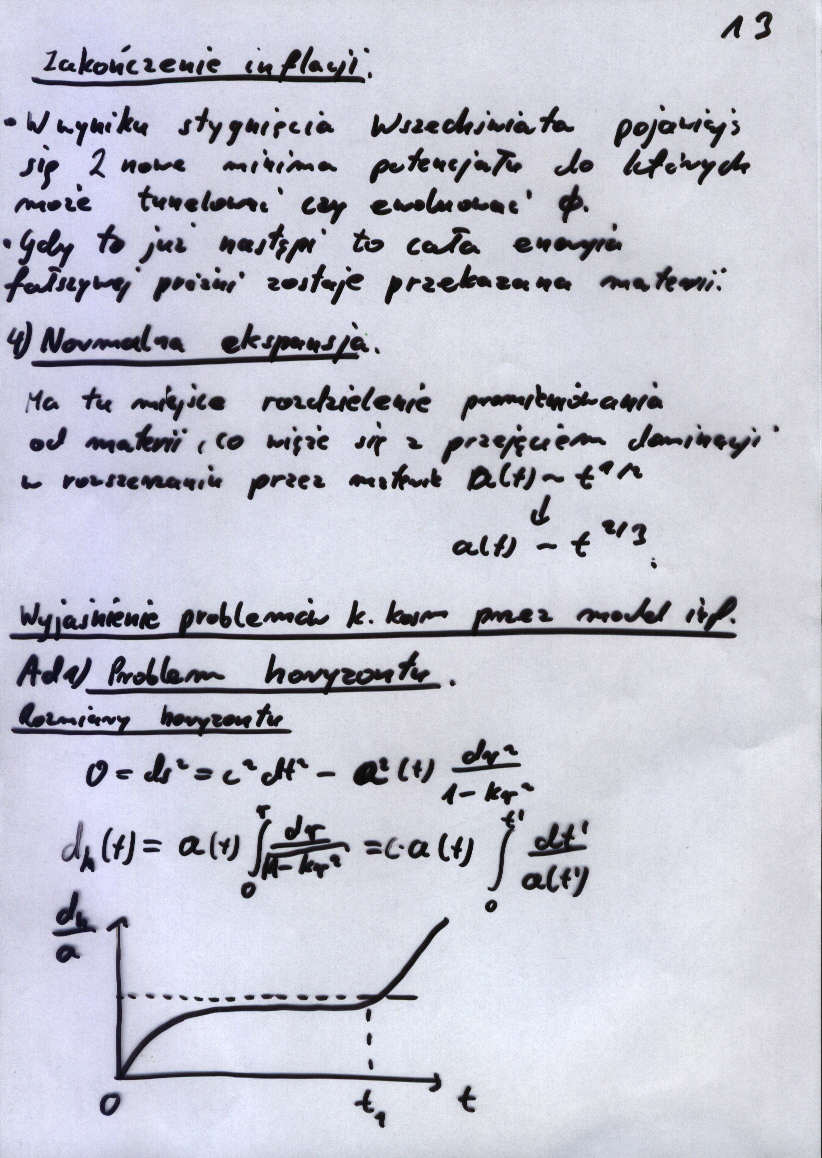 13
Zakończenie inflacji.
• W wyniku stygnięcia Wszechświata pojawiają
się 2 nowe minima potencjału do których
może tunelować czy ewoluować ϕ.
• Gdy to już nastąpi to cała energia
fałszywej próżni zostaje przekazana materii.
4) Normalna ekspansja.
Ma tu miejsce rozdzielenie promieniowania
od materii, co wiąże się z przejęciem dominacji
w rozszerzaniu przez materię a(t) ~ t^1/2
↓
a(t) ~ t^2/3.
Wyjaśnienie problemów k. kosm przez model inf.
Ad1) Problem horyzontu.
Rozmiary horyzontu
0 = ds² = c² dt² - a²(t) dr²/1-kr²
d_h(t) = a(t) ∫₀^r dr/√1-kr² = c·a(t) ∫₀^t' dt'/a(t')
d_h/a
0 t₁ t